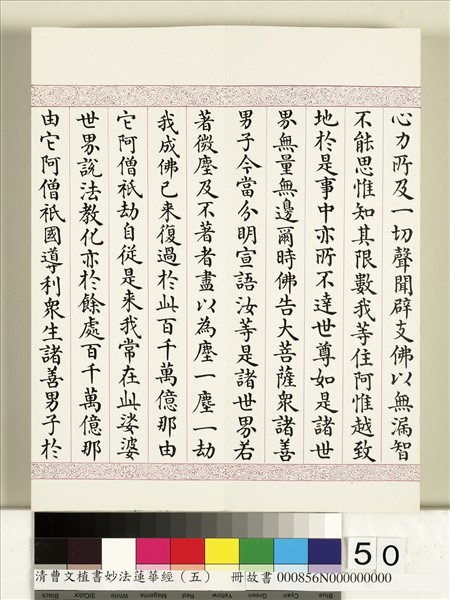 心力所及一切聲聞辟支佛以無漏智
不能思惟知其限數我等住阿惟越致
地於是事中亦所不達世尊如是諸世
界無量無邊爾時佛告大菩薩眾諸善
男子今當分明宣語汝等是諸世界若
著微塵及不著者盡以為塵一塵一劫
我成佛已来復過於此百千萬億那由
它阿僧祇劫自從是来我常在此娑婆
世界說法教化亦於餘處百千萬億那
由它阿僧祇國導利眾生諸善男子於
50
Black 3/Color White Magenta Red Yellow Green Cyan Blue
清曹文植書妙法蓮華經（五） 冊故書 000856N000000000